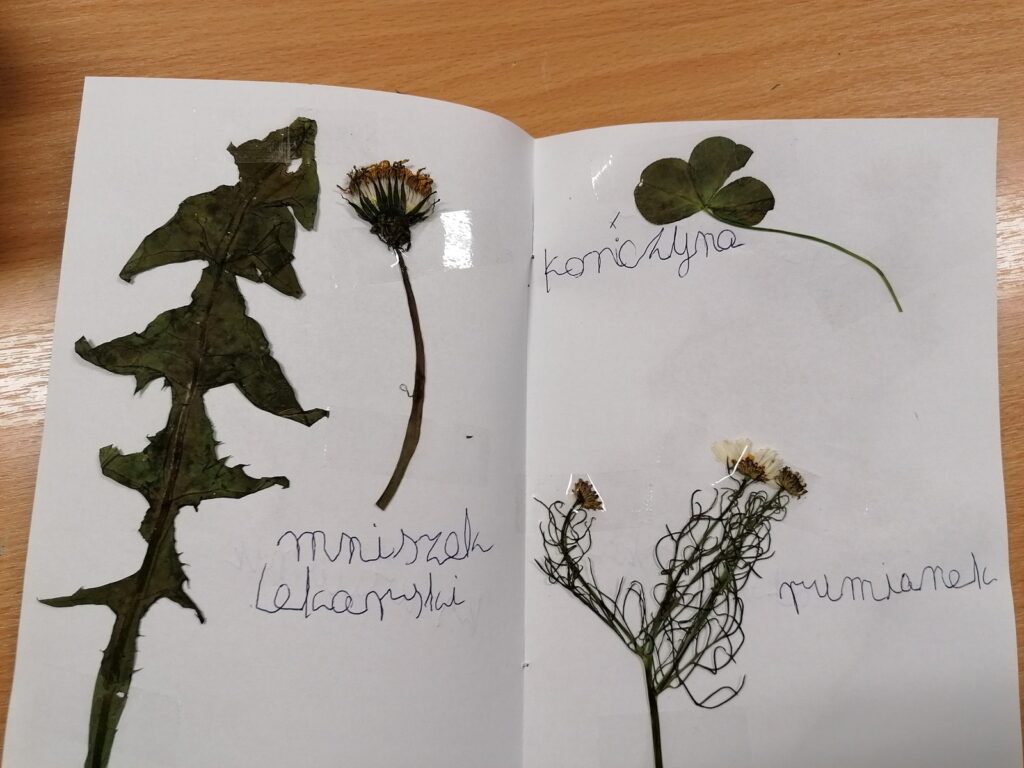 mniszek
lekarski
koniczyna
rumianek